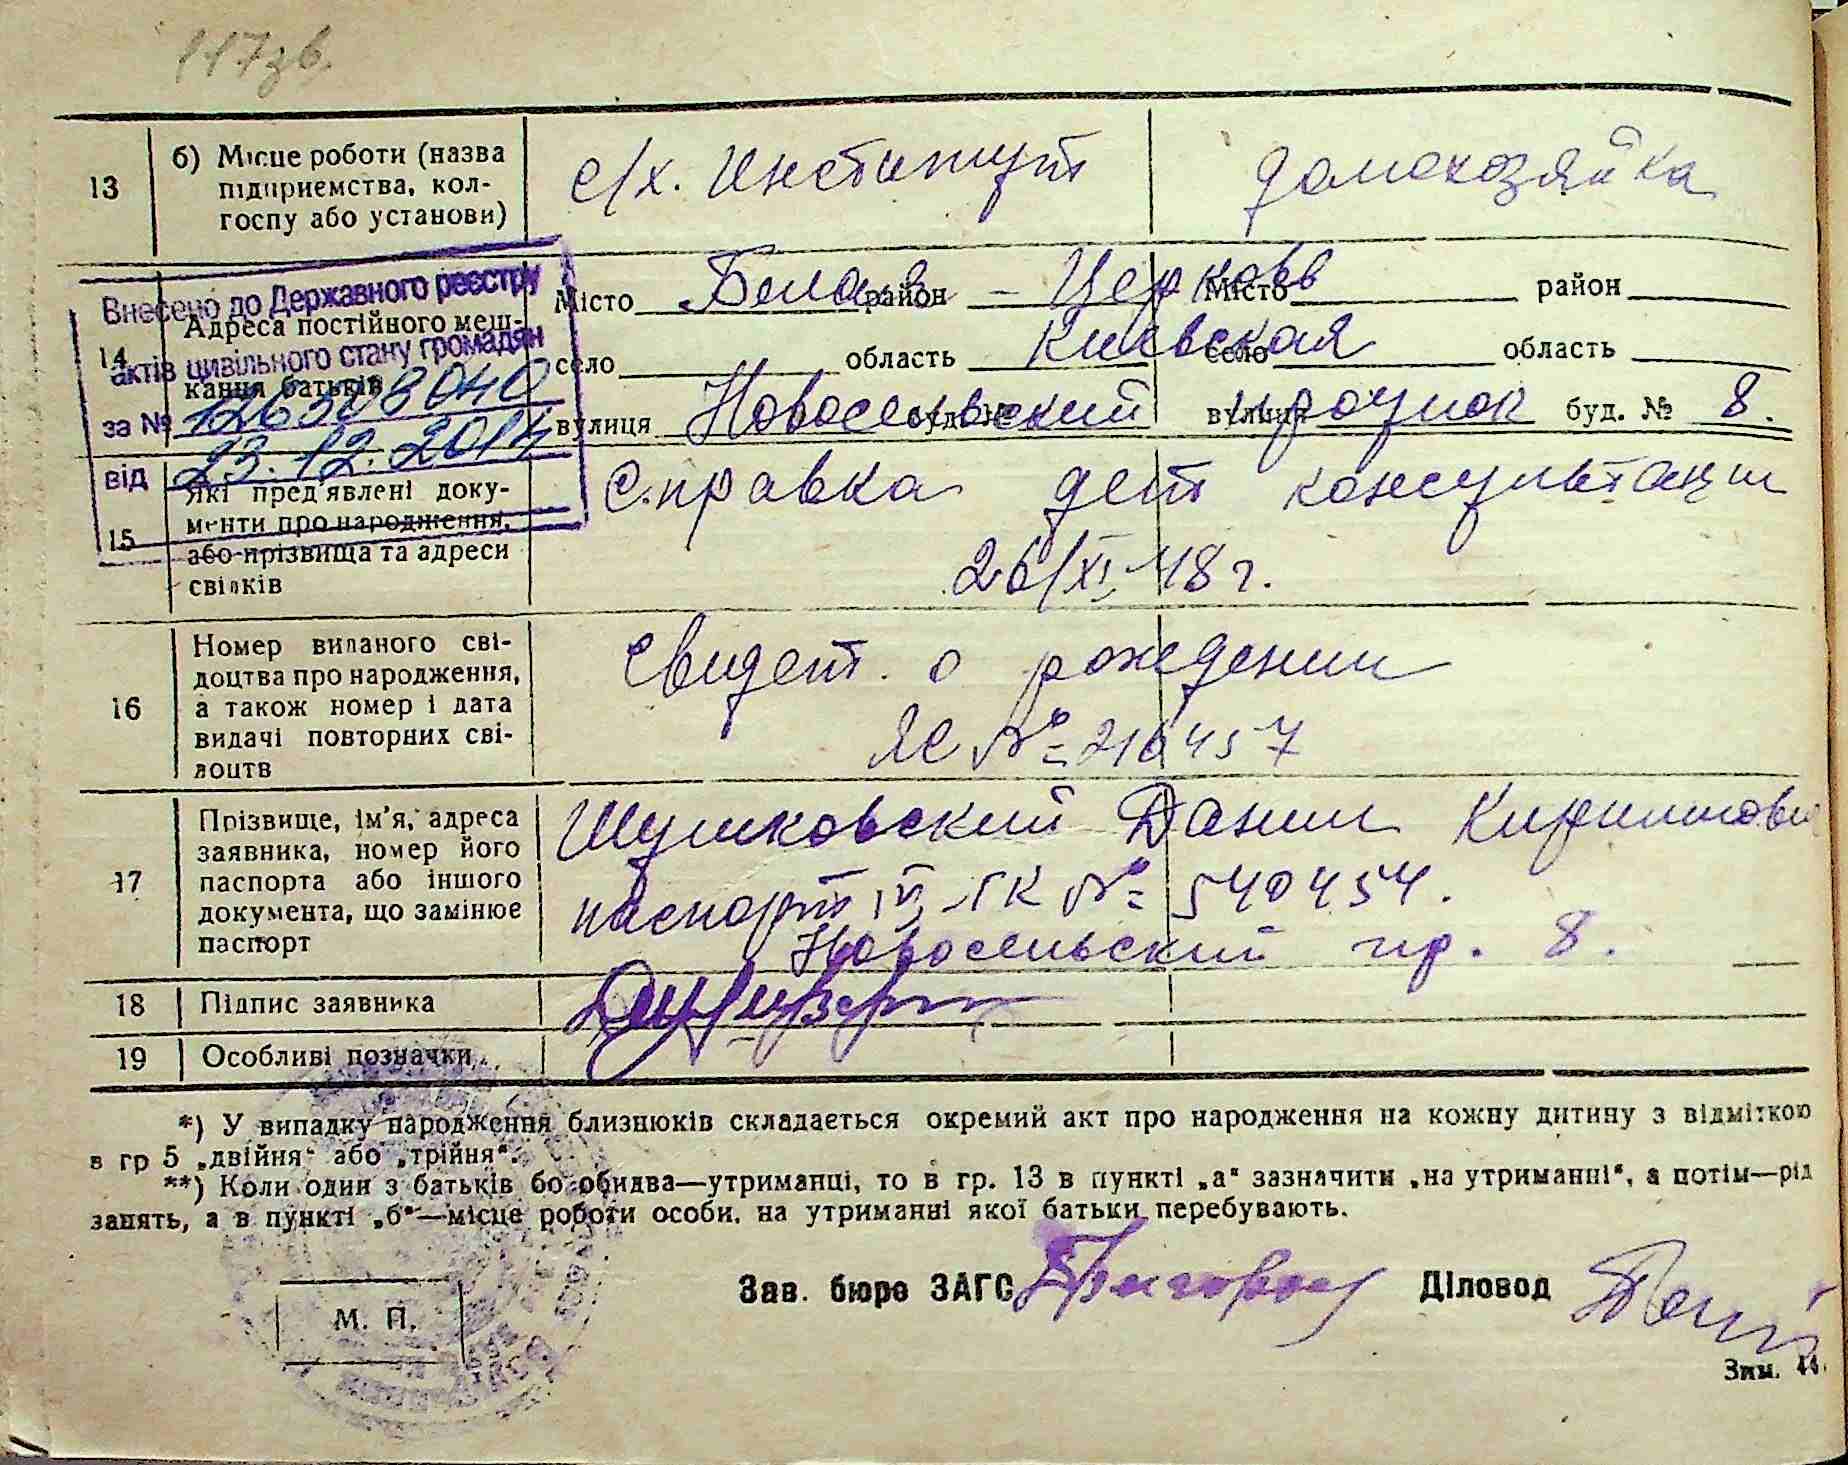 117зв.
13
б) Місце роботи (назва
підприємства, кол-
госпу або установи)
с/х. Институт
домохозяйка
Внесено до Державного реєстру
актів цивільного стану громадян
за № 126508040
від 23.12.2014
14
Адреса постійного меш-
кання батьків
Місто Белая район – Церковь Місто район
село область Киевская село область
вулиця Новосельский будон № вулиця проулок буд. № 8.
15
Які пред'явлені доку-
менти про народження,
або прізвища та адреси
свідків
Справка дет консультации
26/XI 48 г.
16
Номер виданого сві-
доцтва про народження,
а також номер і дата
видачі повторних сві-
доцтв
Свидет. о рождении
ЯС № 216457
17
Прізвище, ім'я, адреса
заявника, номер його
паспорта або іншого
документа, що замінює
паспорт
Данил
паспорт IV № 540454.
Новосельский пр. 8.
18
Підпис заявника
19
Особливі позначки
*) У випадку народження близнюків складається окремий акт про народження на кожну дитину з відміткою
в гр 5 „двійня“ або „трійня“.
**) Коли один з батьків бо обидва—утриманці, то в гр. 13 в пункті „а“ зазначити „на утриманні“, а потім—рід
занять, а в пункті „б“—місце роботи особи, на утриманні якої батьки перебувають.
Зав. бюро ЗАГС Діловод
М. П.
Зим. 44.